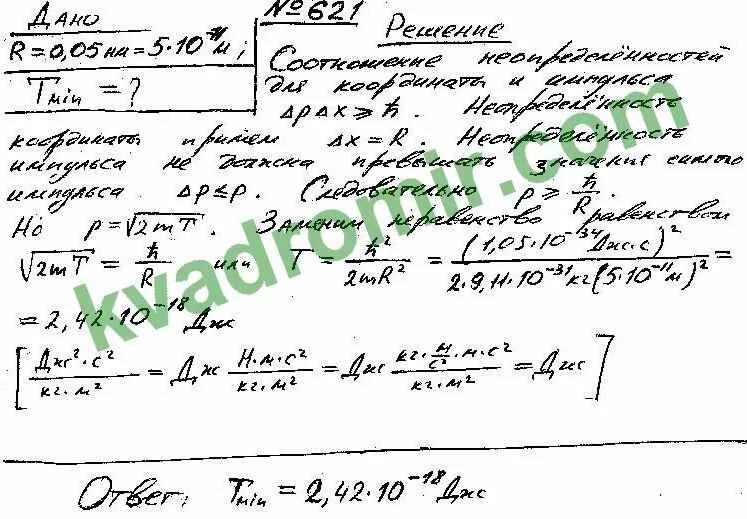 Дано
R = 0,05 нм = 5·10⁻¹¹ м;
Tmin = ?
№ 621
Решение
Соотношение неопределённостей
для координаты и импульса
ΔpΔx ≥ ħ. Неопределённость
координаты примем Δx = R. Неопределённость
импульса не должна превышать значения самого
импульса. Δp ≤ p. Следовательно p ≥ ħ/R.
Но p = √2mT. Заменим неравенство равенством
√2mT = ħ/R или T = ħ²/2mR² = (1,05·10⁻³⁴ Дж·с)²/2·9,11·10⁻³¹ кг(5·10⁻¹¹ м)² =
= 2,42·10⁻¹⁸ Дж
[Дж²·с²/кг·м² = Дж Н·м·с²/кг·м² = Дж кг·м/с²·м·с²/кг·м² = Дж]
Ответ: Tmin = 2,42·10⁻¹⁸ Дж
kvadromir.com